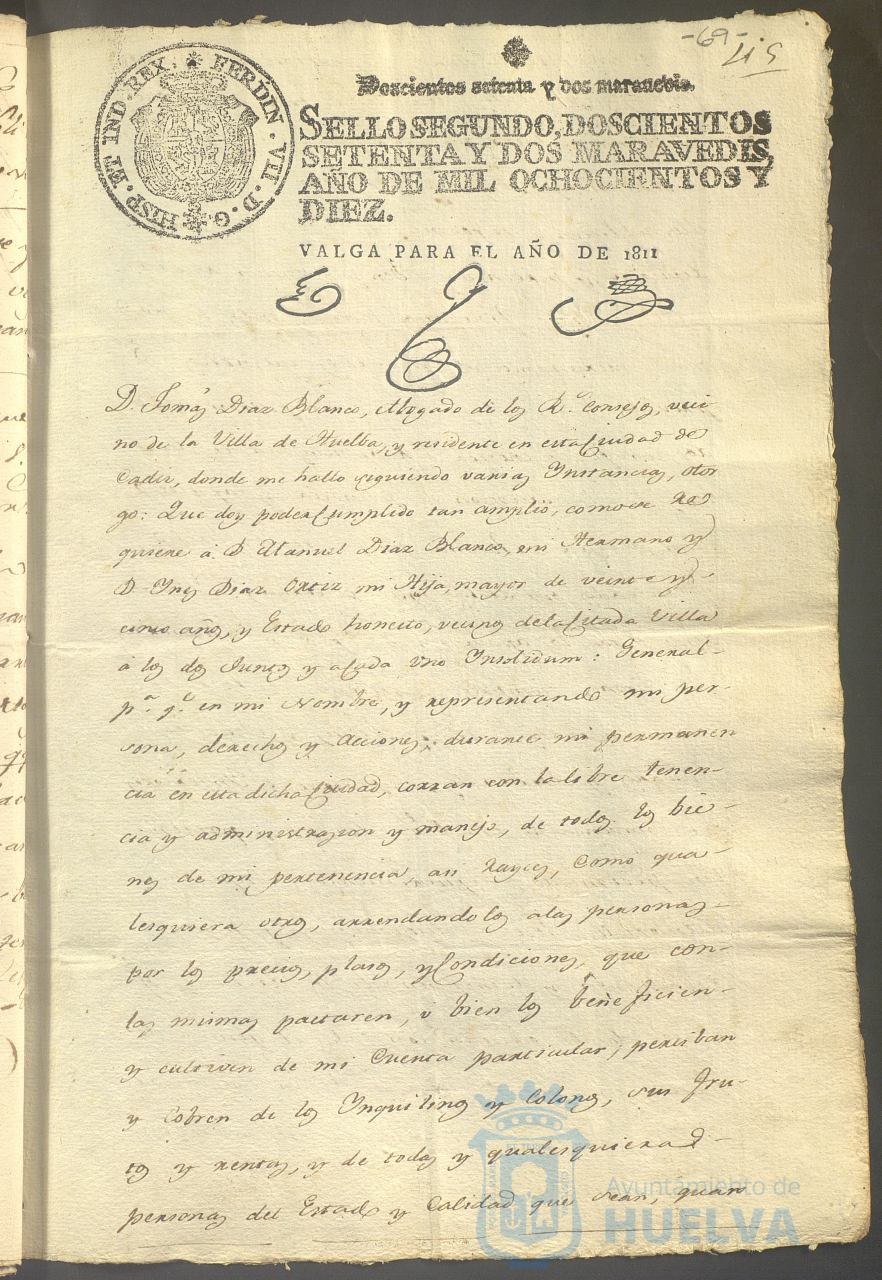 -69-
415
Doscientos setenta y dos maravedis.
HISP. ET IND. REX. FERDIN. VII. D. G.
SELLO SEGUNDO, DOSCIENTOS
SETENTA Y DOS MARAVEDIS,
AÑO DE MIL OCHOCIENTOS Y
DIEZ.
VALGA PARA EL AÑO DE 1811
D. Tomás Diaz Blanco, Abogado de los Rs. Consejos, veci-
no de la Villa de Huelba, y residente en esta Ciudad de
Cadiz, donde me hallo siguiendo varias Instancias, otor
go: Que doy poder Cumplido tan amplio, como se re
quiere á D. Manuel Diaz Blanco, mi Hermano y
D. Ines Diaz Ortiz mi Hija, mayor de veinte y
cinco años, y Estado honesto, vecinos de la Citada Villa
á los dos Juntos y a Cada uno Insolidum: General-
pa. qe. en mi Nombre, y representando mi per-
sona, derechos y Acciones, durante mi permanen
cia en esta dicha Ciudad, corran con la libre tenen-
cia y administrazion y manejo, de todos los bie-
nes de mi pertenencia, asi rayces, como qua-
lesquiera otros, arrendandolos a las personas-
por los precios, plasos, y Condiciones, que con-
las mismas pactaren, ó bien los beneficien-
y cultiven de mi Cuenta particular; perciban
y Cobren de los Ynquilinos y Colonos, sus fru-
tos y rentas, y de todas y qualesquiera
personas del Estado y Calidad que sean, quan
Ayuntamiento de
HUELVA